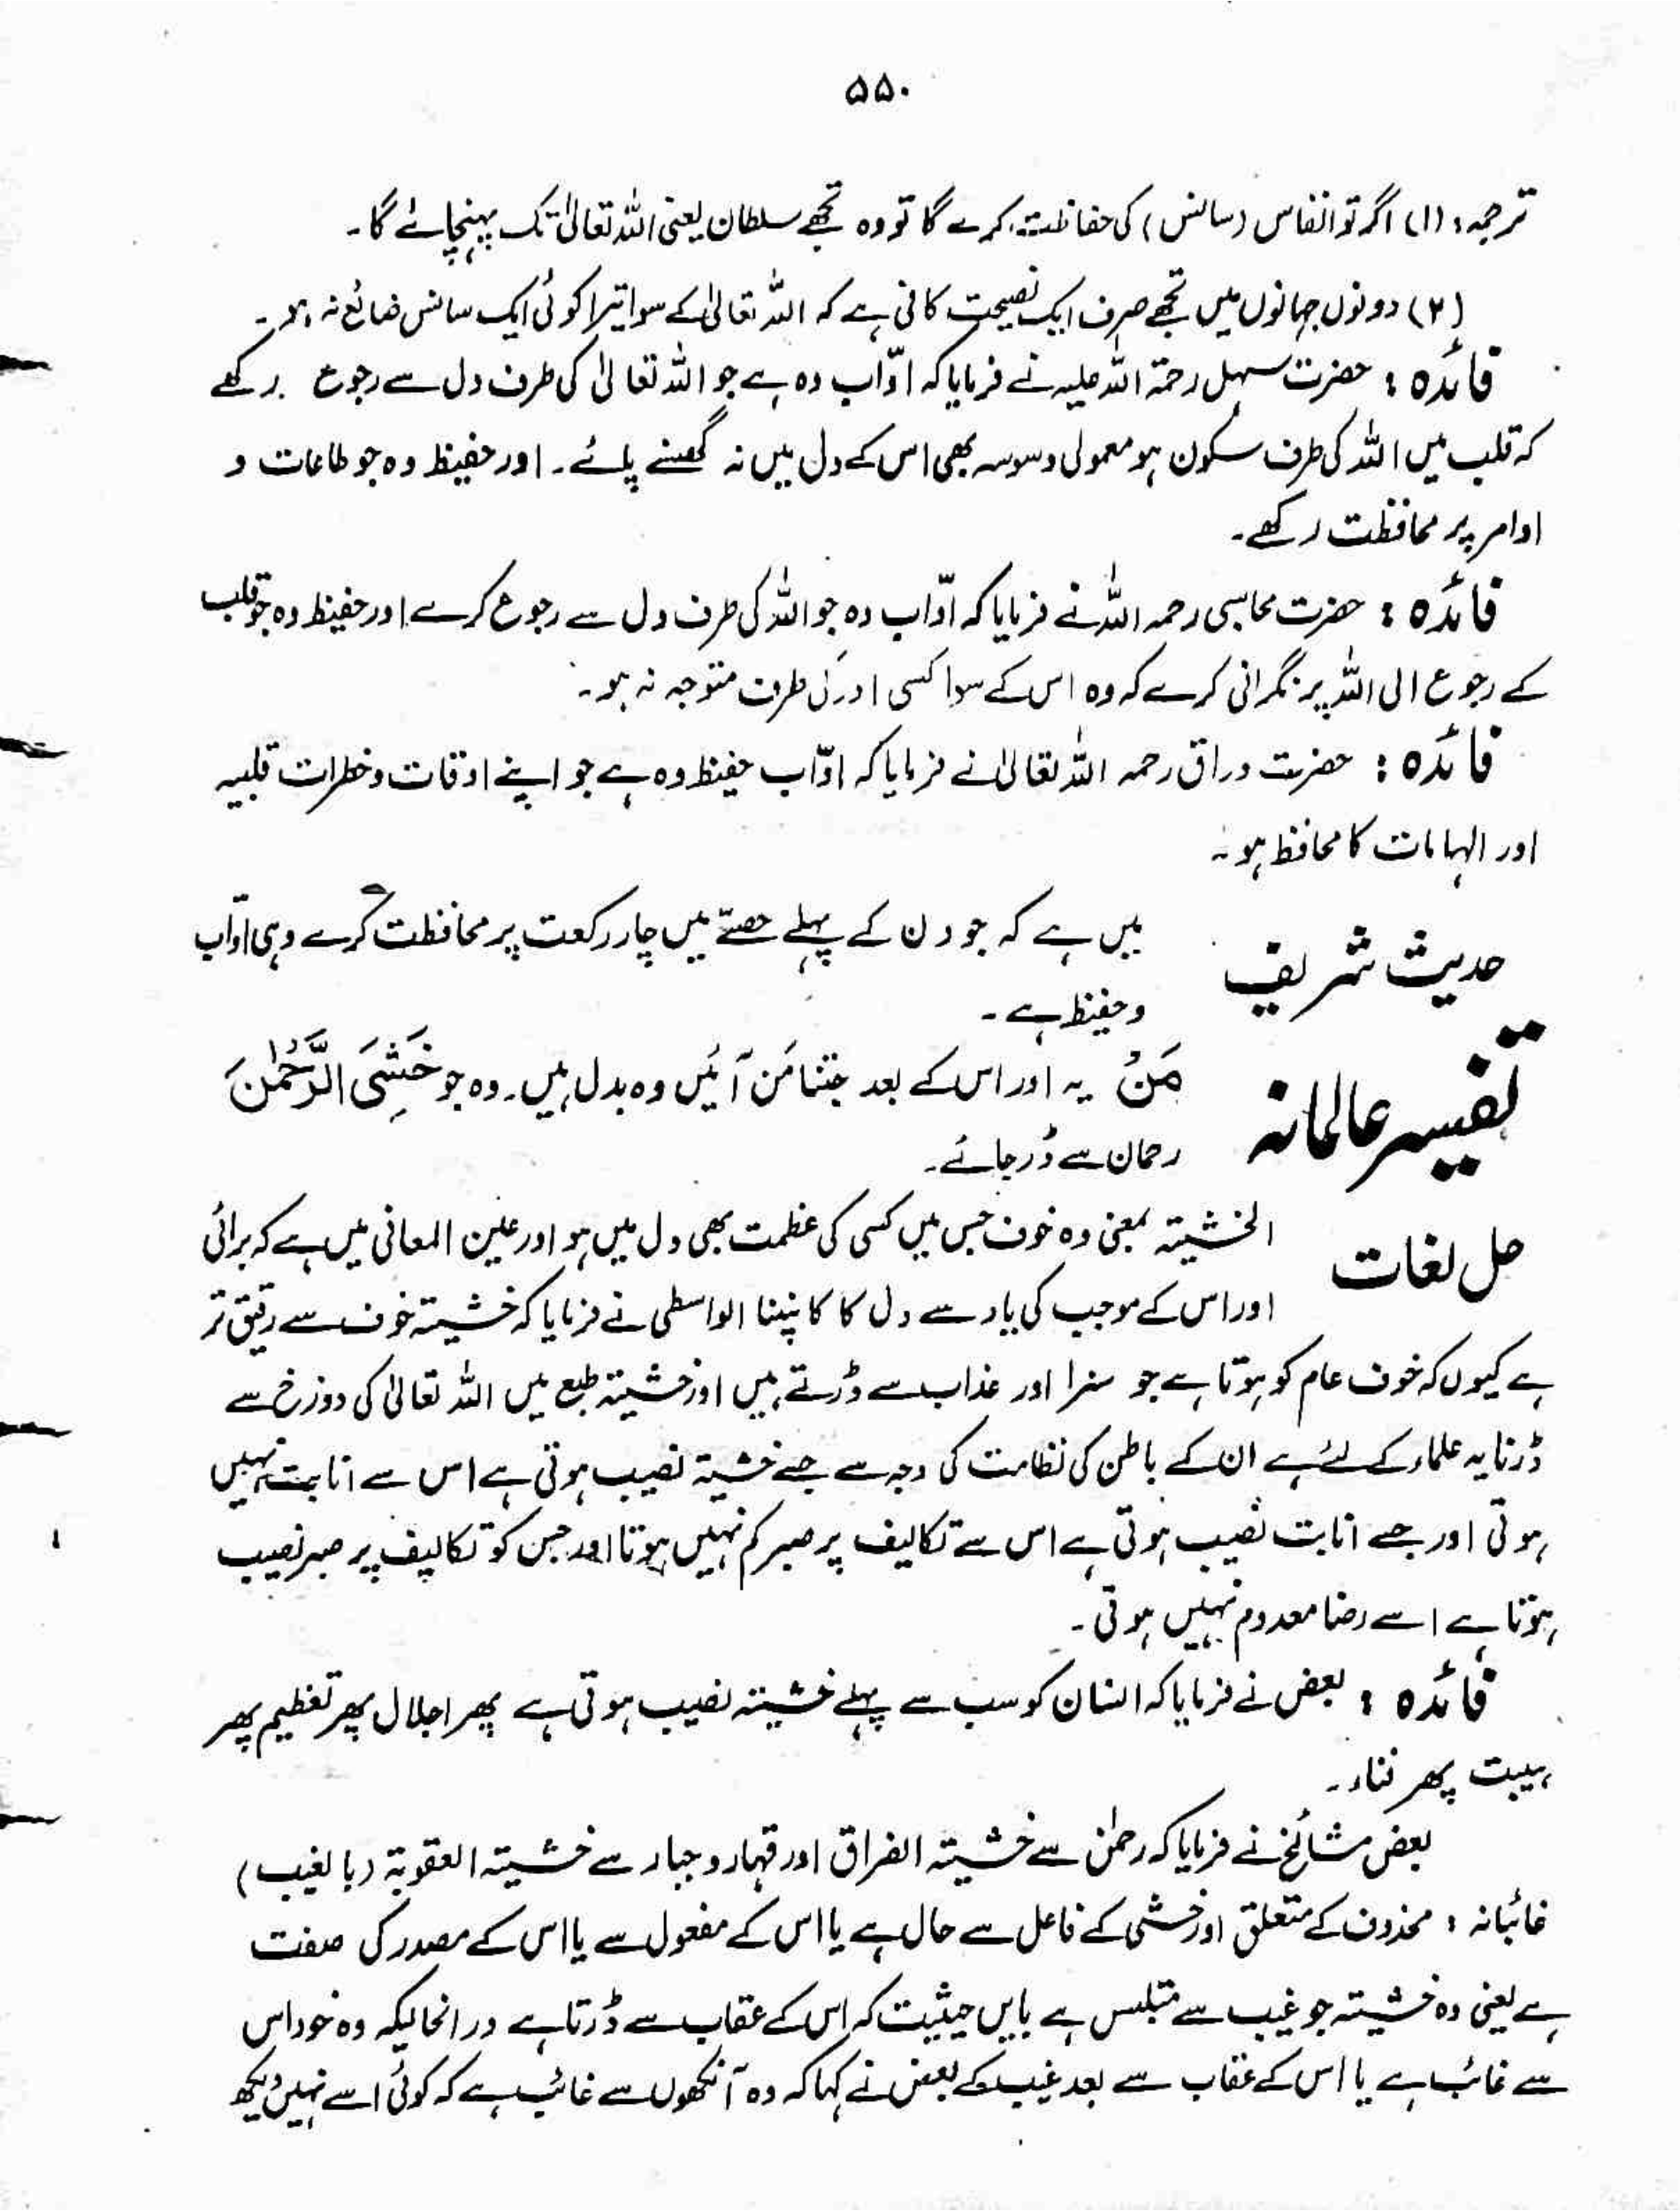 ۵۵۰
ترجمہ: (۱) اگر تو انفاس (سانس) کی حفاظت کرے گا تو وہ تجھے سلطان یعنی اللہ تعالیٰ تک پہنچائے گا۔
(۲) دونوں جہانوں میں تجھے صرف ایک نصیحت کافی ہے کہ اللہ تعالیٰ کے سوا تیرا کوئی ایک سانس ضائع نہ ہو۔
فائدہ : حضرت سہل رحمۃ اللہ علیہ نے فرمایا کہ اوّاب وہ ہے جو اللہ تعالیٰ کی طرف دل سے رجوع رکھے
کہ قلب میں اللہ کی طرف سکون ہو معمولی وسوسہ بھی اس کے دل میں نہ گھسنے پائے۔ اور حفیظ وہ جو طاعات و
اوامر پر محافظت رکھے۔
فائدہ : حضرت محاسبی رحمہ اللہ نے فرمایا کہ اوّاب وہ جو اللہ کی طرف دل سے رجوع کرے اور حفیظ وہ جو قلب
کے رجوع الی اللہ پر نگرانی کرے کہ وہ اس کے سوا کسی اور کی طرف متوجہ نہ ہو۔
فائدہ : حضرت وراق رحمہ اللہ تعالیٰ نے فرمایا کہ اوّاب حفیظ وہ ہے جو اپنے اوقات و خطرات قلبیہ
اور الہامات کا محافظ ہو۔
حدیث شریف میں ہے کہ جو دن کے پہلے حصّے میں چار رکعت پر محافظت کرے وہی اوّاب
و حفیظ ہے۔
تفسیر عالمانہ مَنْ یہ اور اس کے بعد جتنا مَن آئیں وہ بدل ہیں۔ وہ جو خَشِیَ الرَّحْمٰنَ
رحمان سے ڈر جائے۔
حل لغات الخشیتہ بمعنی وہ خوف جس میں کسی کی عظمت بھی دل میں ہو اور عین المعانی میں ہے کہ برائی
اور اس کے موجب کی یاد سے دل کا کانپنا الواسطی نے فرمایا کہ خشیتہ خوف سے رقیق تر
ہے کیوں کہ خوف عام کو ہوتا ہے جو سزا اور عذاب سے ڈرتے ہیں اور خشیتہ طبع میں اللہ تعالیٰ کی دوزخ سے
ڈرنا یہ علماء کے لئے ہے ان کے باطن کی نظامت کی وجہ سے جسے خشیتہ نصیب ہوتی ہے اس سے انابت نہیں
ہوتی اور جسے انابت نصیب ہوتی ہے اس سے تکالیف پر صبر کم نہیں ہوتا اور جس کو تکالیف پر صبر نصیب
ہوتا ہے اسے رضا معدوم نہیں ہوتی۔
فائدہ : بعض نے فرمایا کہ انسان کو سب سے پہلے خشیتہ نصیب ہوتی ہے پھر اجلال پھر تعظیم پھر
ہیبت پھر فناء۔
بعض مشائخ نے فرمایا کہ رحمٰن سے خشیتہ الفراق اور قہار و جبار سے خشیتہ العقوبۃ (بالغیب)
غائبانہ : محذوف کے متعلق اور خشی کے فاعل سے حال ہے یا اس کے مفعول سے یا اس کے مصدر کی صفت
ہے یعنی وہ خشیتہ جو غیب سے متلبس ہے بایں حیثیت کہ اس کے عقاب سے ڈرتا ہے در انحالیکہ وہ خود اس
سے غائب ہے یا اس کے عقاب سے بعد غیب کے بعض نے کہا کہ وہ آنکھوں سے غائب ہے کہ کوئی اسے نہیں دیکھ